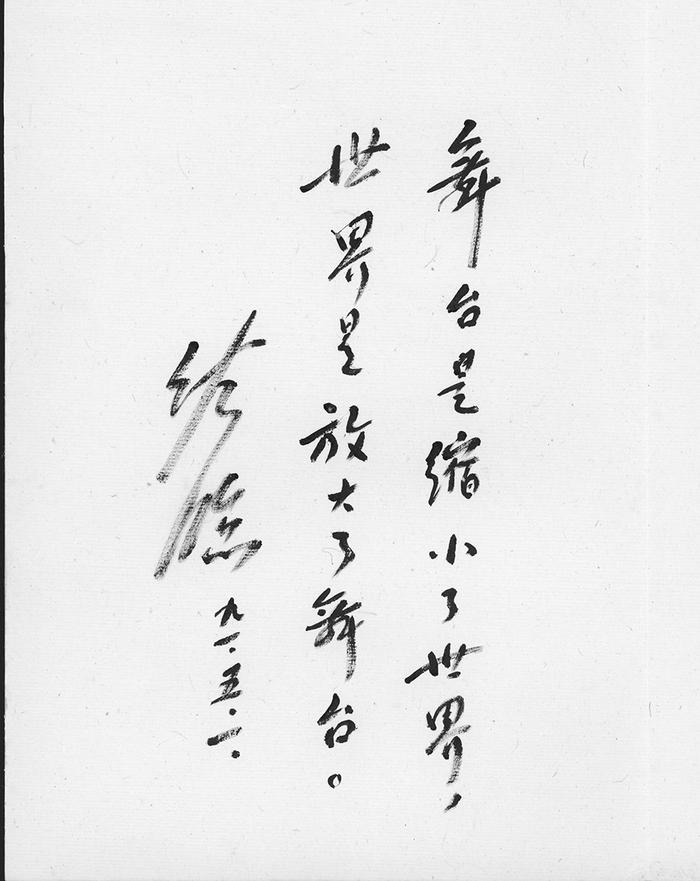 舞台是缩小了世界，
世界是放大了舞台。
佐临
九一.五.一.